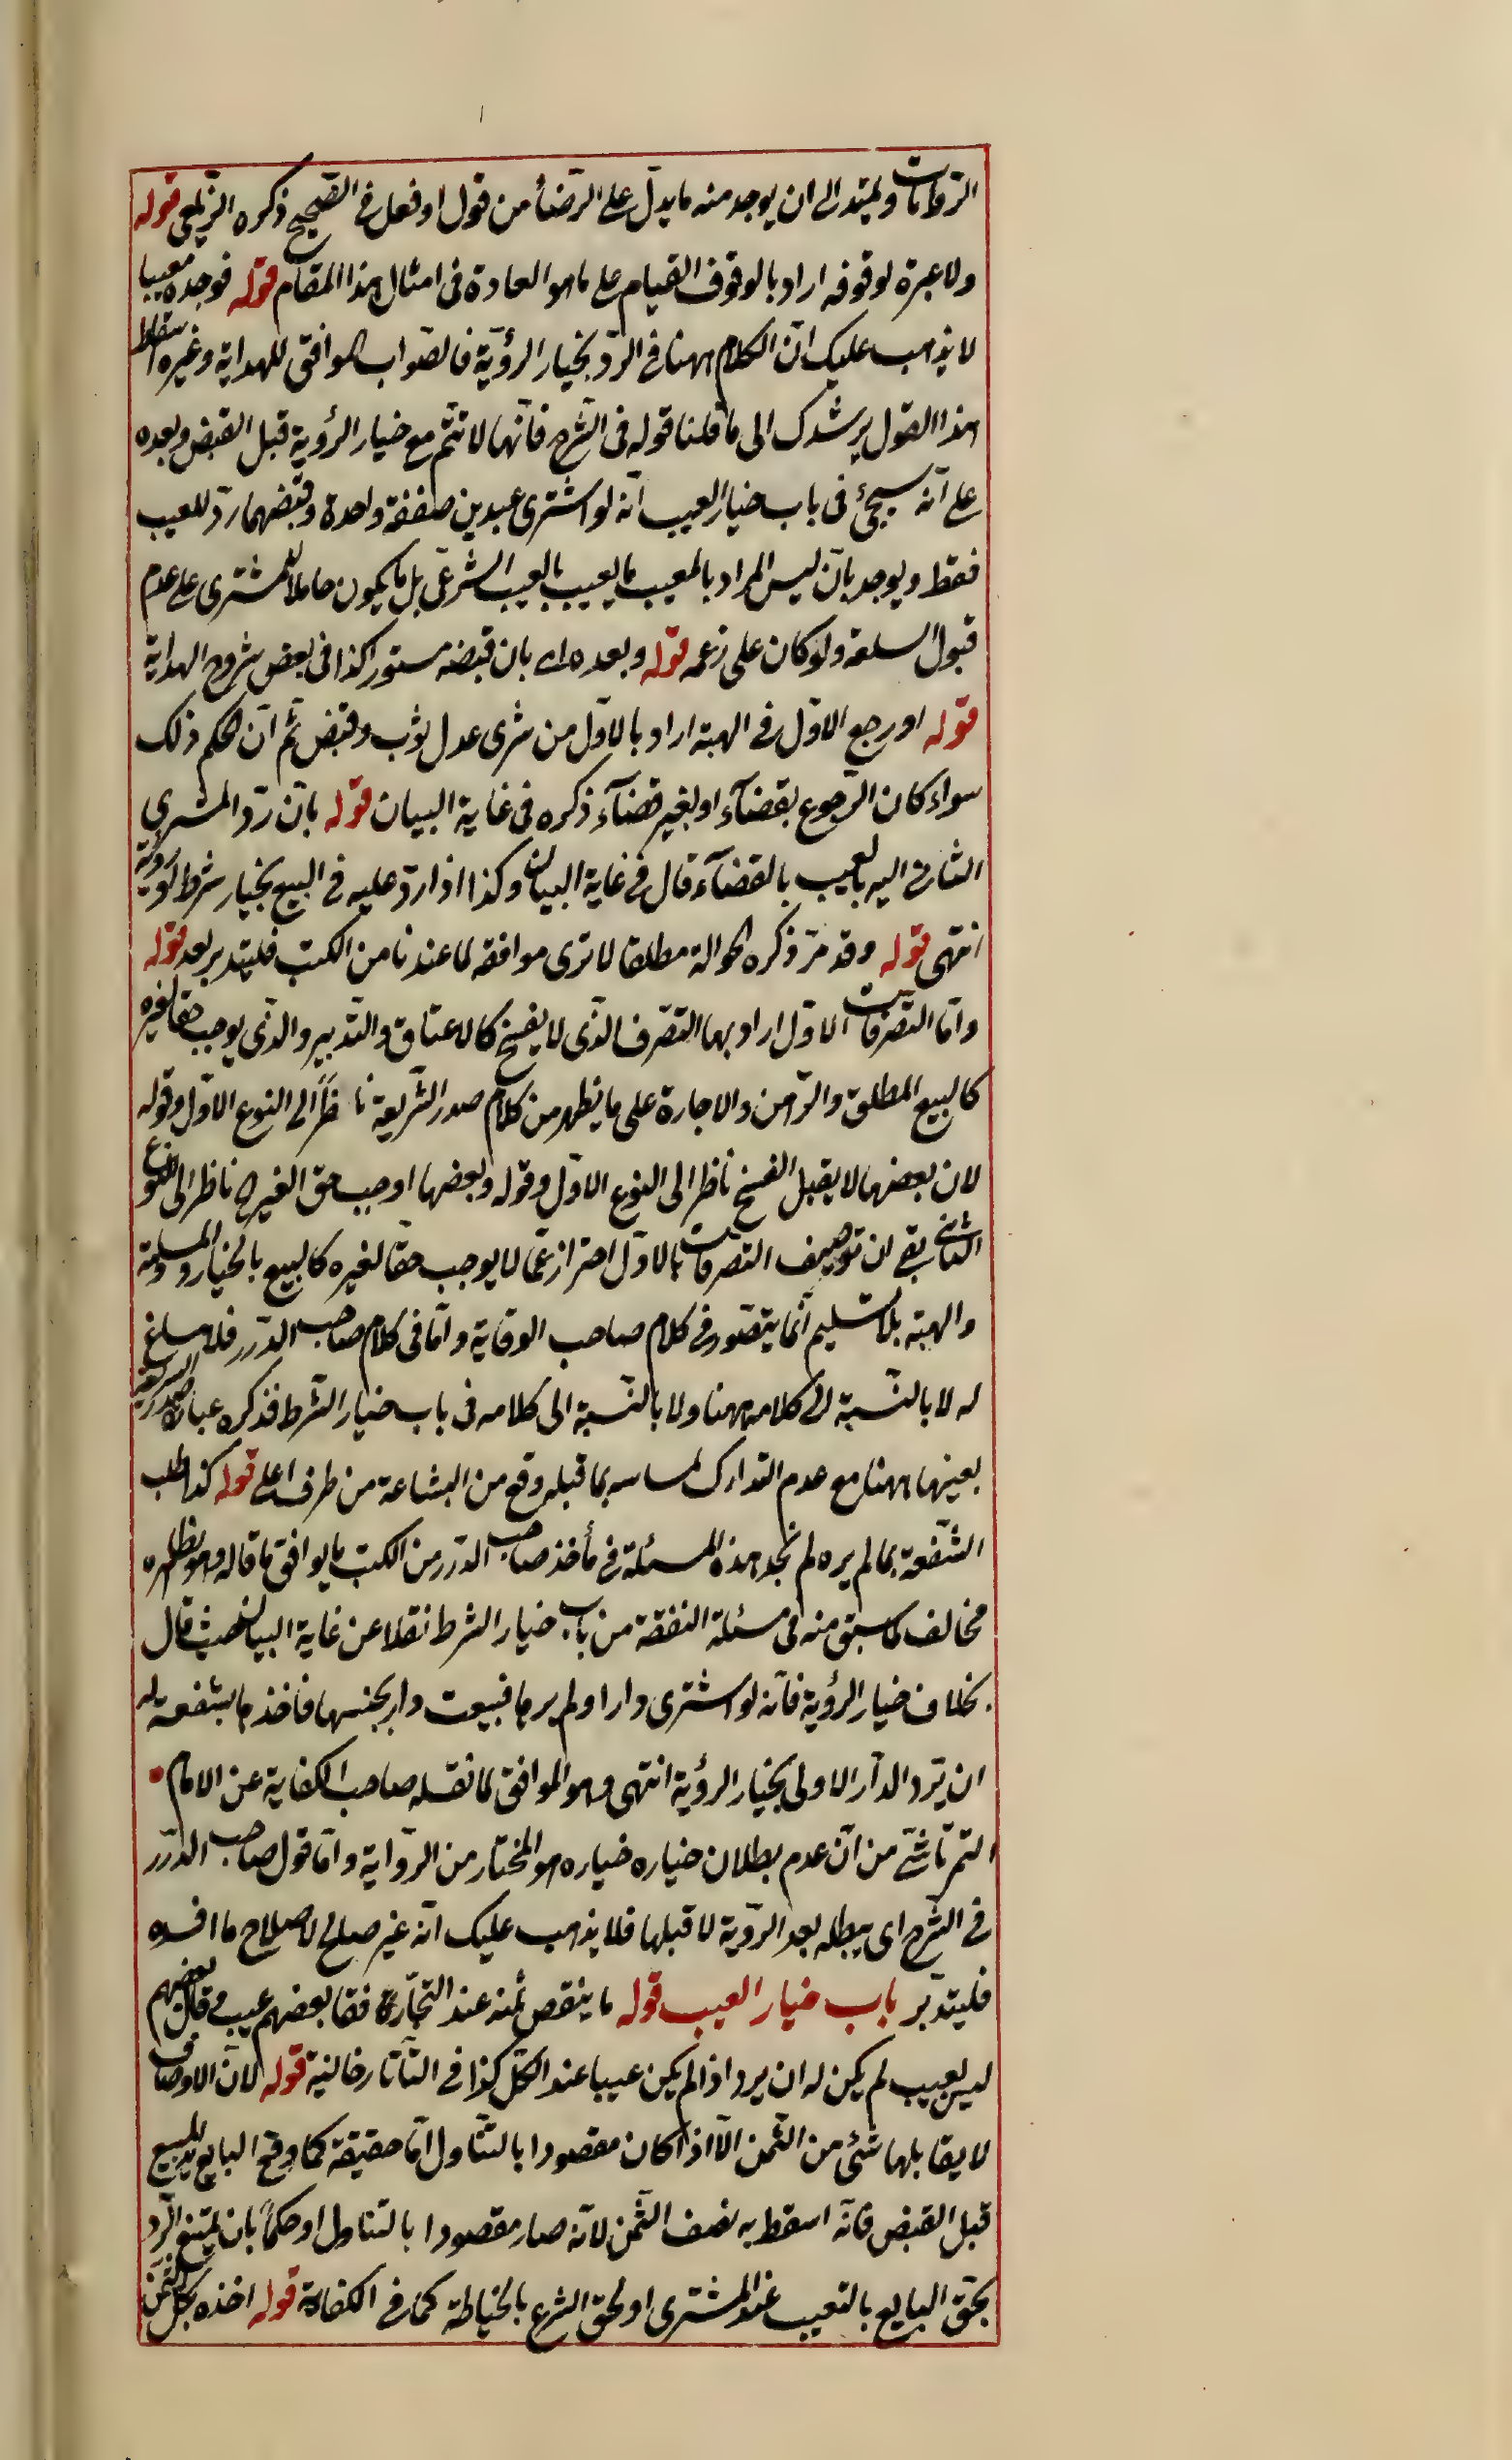 الروايات ويمتد الى ان يوجد منه ما يدل على الرضأ من قول او فعل في الصحيح ذكره الزيلعي قوله
ولا عبرة لوقوفه اراد بالوقوف القيام على ما هو العادة في امثال هذا المقام قوله فوجده معيبا
لا يذهب عليك ان الكلام ههنا في الرد بخيار الرؤية فالصواب الموافق للهداية وغيره اسقاط
هذا القول يرشدك الى ما قلنا قوله في الشرح فانها لا تتم مع خيار الرؤية قبل القبض وبعده
على انه سيجئ في باب خيار العيب انه لو اشترى عبدين صفقة واحدة وقبضهما رد للعيب
فقط ويوجد بان ليس المراد بالمعيب ما يعيب بالعيب الشرعي بل ما يكون حاملا للمشترى على عدم
قبول السلعة ولو كان على زعمه قوله وبعده اى بان قبضه مستورا كذا في بعض شروح الهداية
قوله او رجع الاول في الهبة اراد بالاول من شرى عدل ثوب وقبض ثم ان الحكم ذلك
سواء كان الرجوع بقضآء او بغير قضآء ذكره في غاية البيان قوله بان رد المشترى
الثانى اليه بالعيب بالقضآء قال في غاية البيان وكذا اذا رد عليه في البيع بخيار شرط او رؤية
انتهى قوله وقد مر ذكره الحوالة مطلقا لا ترى موافقه لما عندنا من الكتب فليتدبر بعد قوله
واما التصرفات الاول اراد بها التصرف الذى لا يفسخ كالاعتاق والتدبير والذى يوجب حقا لغيره
كالبيع المطلق والرهن والاجارة على ما يظهر من كلام صدر الشريعة ناظرا الى النوع الاول وقوله
لان بعضها لا يقبل الفسخ ناظر الى النوع الاول وقوله وبعضها اوجب حق الغير ناظر الى النوع
الثاني بقى ان توصيف التصرفات بالاول احتراز عما لا يوجب حقا لغيره كالبيع بالخيار والمساومة
والهبة بلا تسليم انما يتصور في كلام صاحب الوقاية واما في كلام صاحب الدرر فلا مساغ
له لا بالنسبة الى كلامه ههنا ولا بالنسبة الى كلامه في باب خيار الشرط فذكره عبارة صدر الشريعة
بعينها ههنا مع عدم التدارك لمساسه بما قبله وقع من البشاعة من طرف اعلى قوله كذا طلب
الشفعة بما لم يره لم نجد هذه المسئلة في مأخذ صاحب الدرر من الكتب ما يوافق ما قاله وهو بظاهره
مخالف لما سبق منه في مسئلة النفقة من باب خيار الشرط نقلا عن غاية البيان حيث قال
بخلاف خيار الرؤية فانه لو اشترى دارا ولم يرها فبيعت دار بجنبها فاخذها بشفعة له
ان يرد الدار الاولى بخيار الرؤية انتهى وهو الموافق لما نقله صاحب الكفاية عن الامام
التمرتاشى من ان عدم بطلان خياره خياره هو المختار من الرواية واما قول صاحب الدرر
في الشرح اى يبطله بعد الرؤية لا قبلها فلا يذهب عليك انه غير صالح لاصلاح ما افسده
فليتدبر باب خيار العيب قوله ما ينقص ثمنه عند التجار فقا بعضهم عيب وقال بعضهم
ليس بعيب لم يكن له ان يرد اذا لم يكن عيبا عند الكل كذا في التاتارخانية قوله لان الاوصاف
لا يقابلها شئ من الثمن الا اذا كان مقصودا بالتناول اما حقيقة كما وقع البايع للبيع
قبل القبض فانه اسقط به نصف الثمن لانه صار مقصودا بالتناول او حكما بان يمتنع الرد
بحق البايع بالتعيب عند المشترى او لحق الشرع بالخياطة كما في الكفاية قوله اخذه بكل الثمن